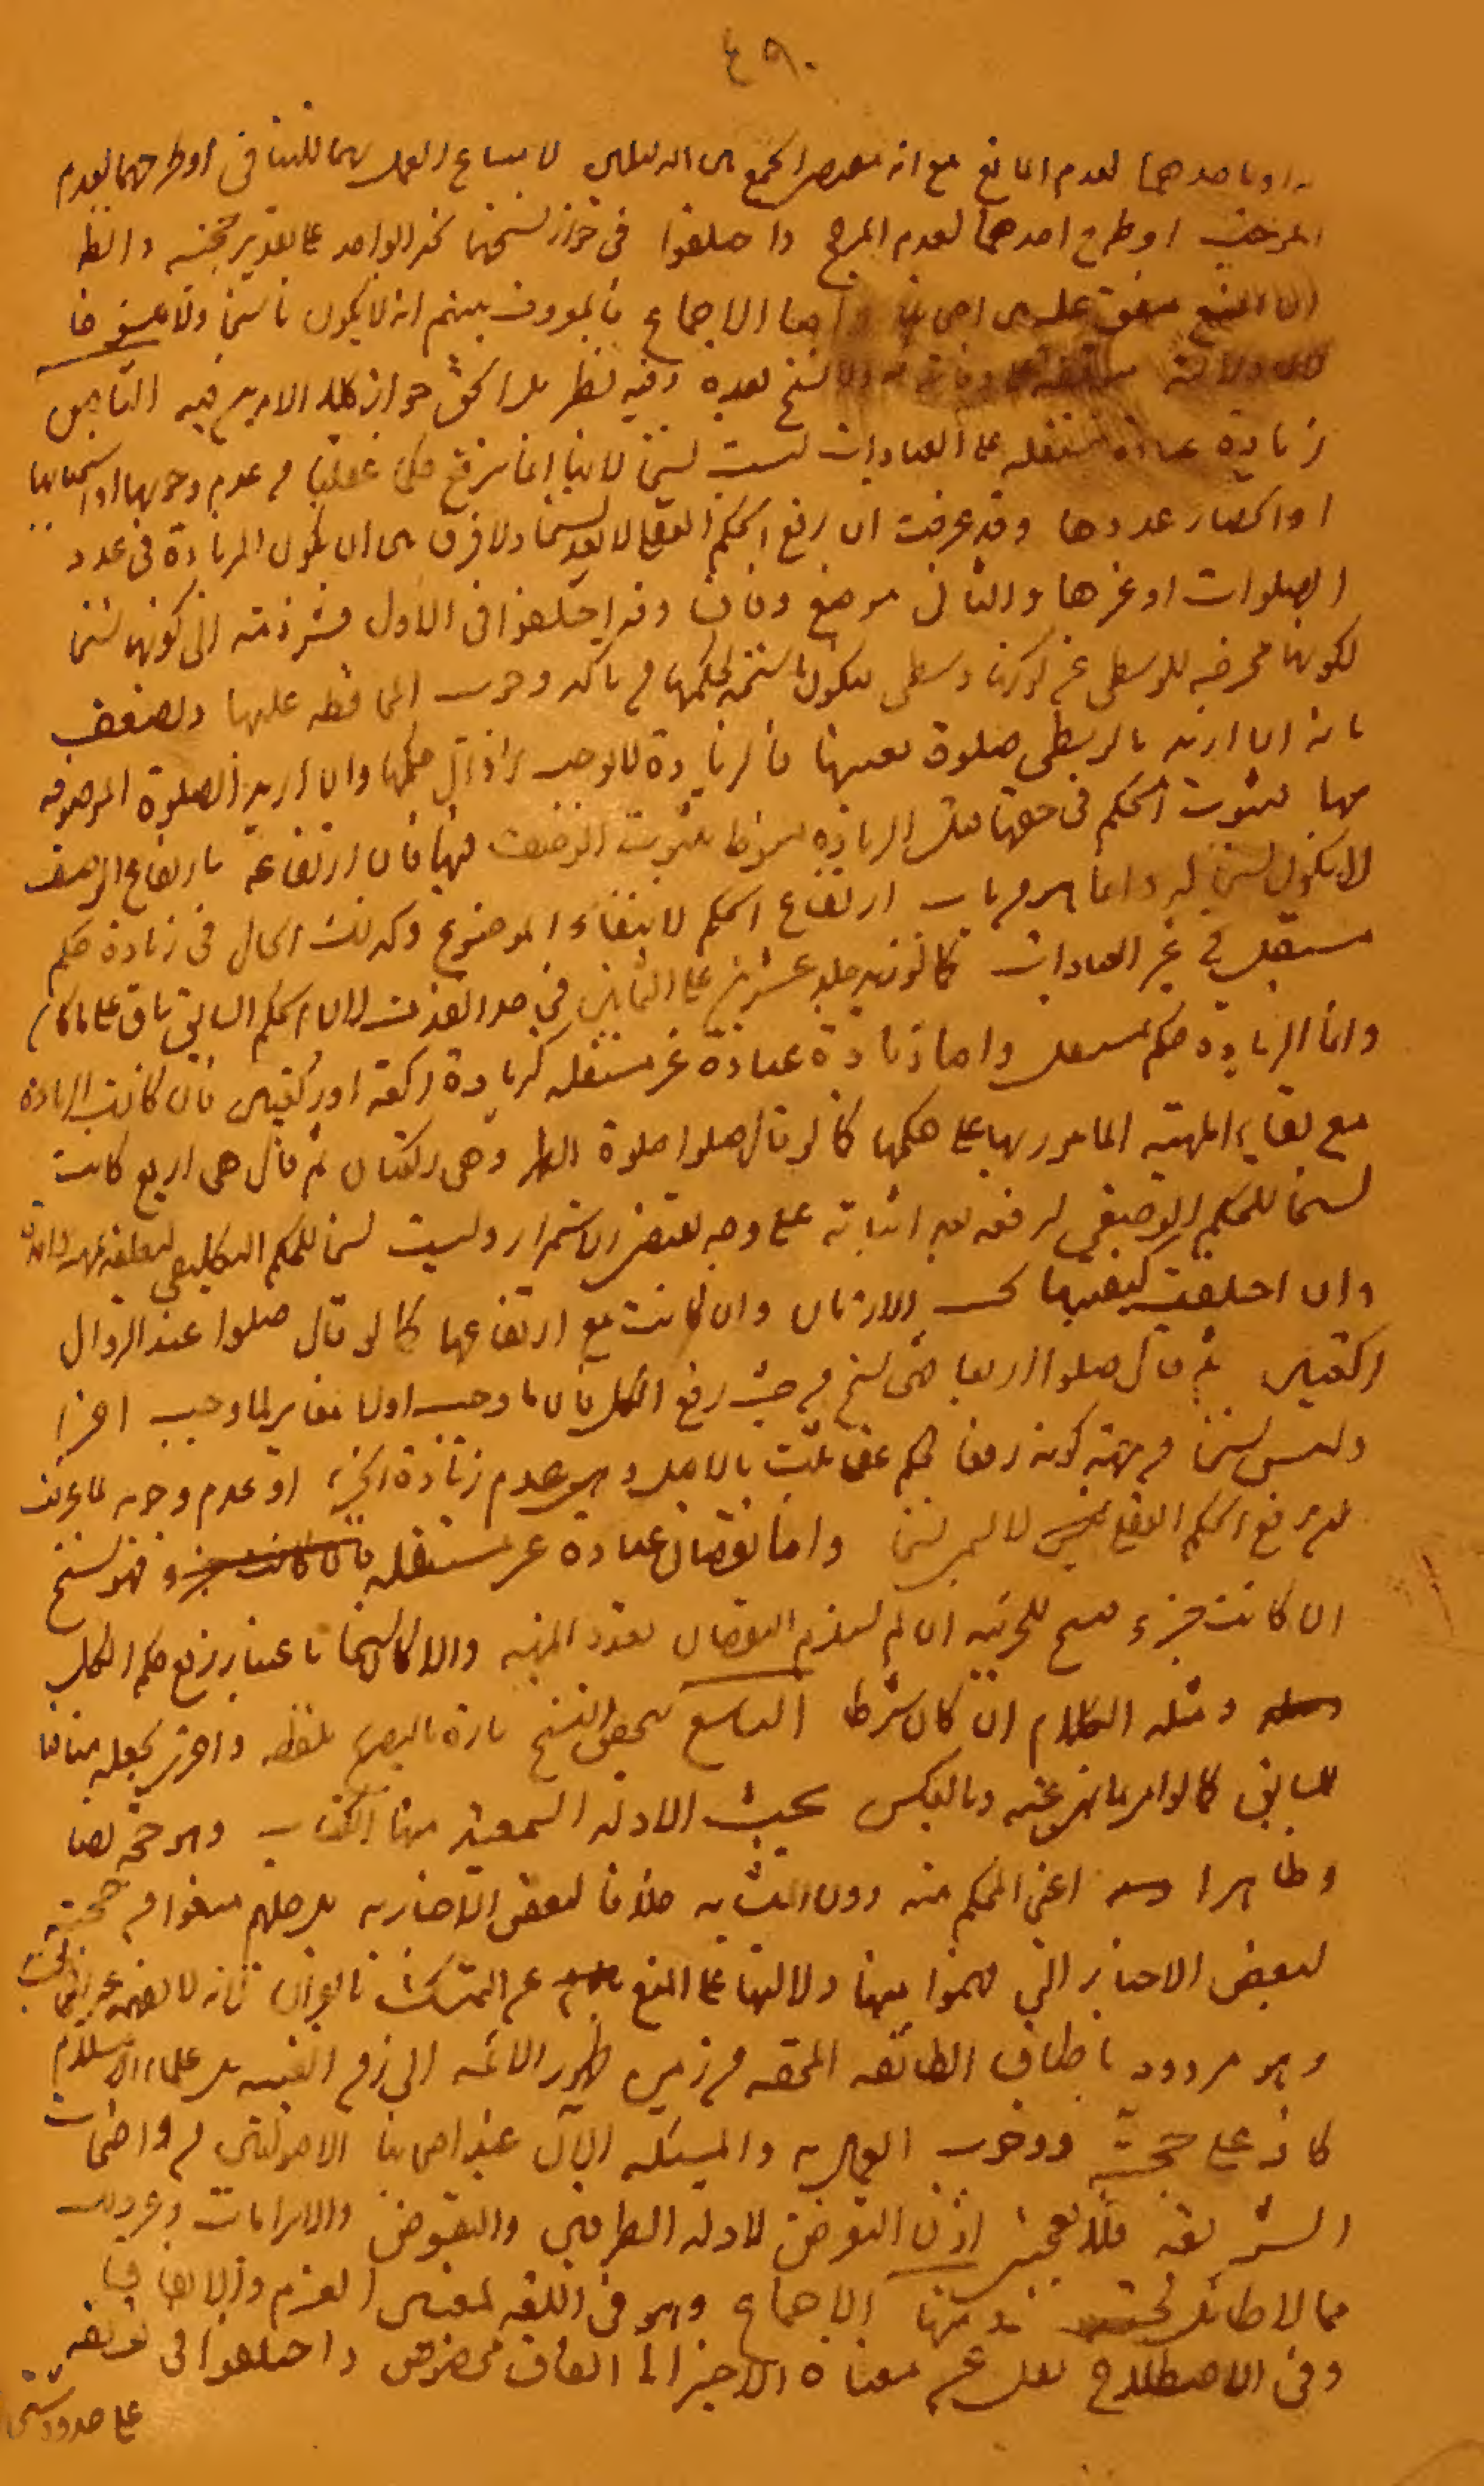 ٤٩٠
او باحدهما لعدم المانع مع انه مقتضى الجمع بين الدليلين لامتناع العمل بهما للتنافى او طرحهما لعدم
المرجح او طرح احدهما لعدم المرجح واختلفوا فى جواز نسخهما بخبر الواحد على تقدير حجيته والظ
ان المنع متفق عليه بين اصحابنا واما الاجماع فالمعروف بينهم انه لا يكون ناسخا ولا منسوخا
ولا نسخ بعده وفيه نظر بل الحق جواز كلا الامرين فيه التاسع
زيادة عبادة مستقلة على العبادات ليست نسخا لانها انما يرفع حكما عقليا من عدم وجوبها او استحبابها
او انحصار عددها وقد عرفت ان رفع الحكم العقلى لا يعد نسخا ولا فرق بين ان يكون الزيادة فى عدد
الصلوات او غيرها والثانى موضع وفاق وقد اختلفوا فى الاول فشرذمة الى كونها نسخا
لكونها مخرجة للوسطى عن كونها وسطى فيكون ناسخة لحكمها من تاكد وجوب المحافظة عليها ويضعف
بانه ان اريد بالوسطى صلوة بعينها فالزيادة لا يوجب زوال حكمها وان اريد الصلوة الموصوفة
بها فثبوت الحكم فى حقها قبل الزيادة منوط بثبوت الوصف فيها فان ارتفاعه بارتفاع الوصف
لا يكون نسخا له وانما هو من باب ارتفاع الحكم لانتفاء الموضوع وكذلك الحال فى زيادة حكم
مستقل فى غير العبادات كما لو زيد جلد عشرين على الثمانين فى حد القذف لان الحكم السابق باق على ما كان
وانما الزيادة حكم مستقل واما زيادة عبادة غير مستقلة كزيادة ركعة او ركعتين فان كانت الزيادة
مع بقاء المهية المامور بها على حكمها كما لو قال صلوا صلوة الظهر وهى ركعتان ثم قال هى اربع كانت
نسخا للحكم الوضعى لرفعه بعد اثباته على وجه يقتضى الاستمرار وليست نسخا للحكم التكليفى لتعلقه بمهية واحدة
وان اختلفت كيفيتها بحسب الازمان وان كانت مع ارتفاعها كما لو قال صلوا عند الزوال
ركعتين ثم قال صلوا اربعا فهى نسخ من حيث رفع الكل فان ما وجب اولا مغاير لما وجب اخرا
وليس نسخا من جهة كونه رفعا لحكم عقلى ثبت بالاصل وهو عدم زيادة الجزء او عدم وجوبه لما عرفت
ان رفع الحكم العقلى لا يسمى نسخا واما نقصان عبادة غير مستقلة فهو نسخ
ان كانت جزء فنسخ للجزئية ان لم يستلزم النقصان تعدد المهية والا كان نسخا باعتبار رفع حكم الكل
ومثله الكلام ان كان شرطا التاسع يتحقق النسخ تارة بالتصريح بلفظه واخرى بجعله منافيا
للسابق كالامر بما نهى عنه وبالعكس بحيث الادلة السمعية منها الكتاب وهو حجة نصا
وظاهرا اعنى المحكم منه دون المتشابه خلافا لبعض الاخبارية بل جلهم منعوا من حجيته
لبعض الاخبار التى فهموا منها دلالتها على المنع عن التمسك بالقران فانه لا يفهمه غير المخاطب
وهو مردود باطباق الطائفة المحقة من زمن ظهور الائمة الى زمن الغيبة بل علماء الاسلام
كافة على حجيته ووجوب العمل به والمسئلة الان عند اصحابنا الاصوليين من واضحات
الشريعة فلا يعجبنى اذن التعرض لادلة الطرفين والنقوض والابرامات وغير ذلك
مما لا طائل تحته منها الاجماع وهو فى اللغة لمعنيين العزم والاتفاق
وفى الاصطلاح نقل عن معناه الاخير الى اتفاق مخصوص واختلفوا فى تعريفه
على حدود شتى